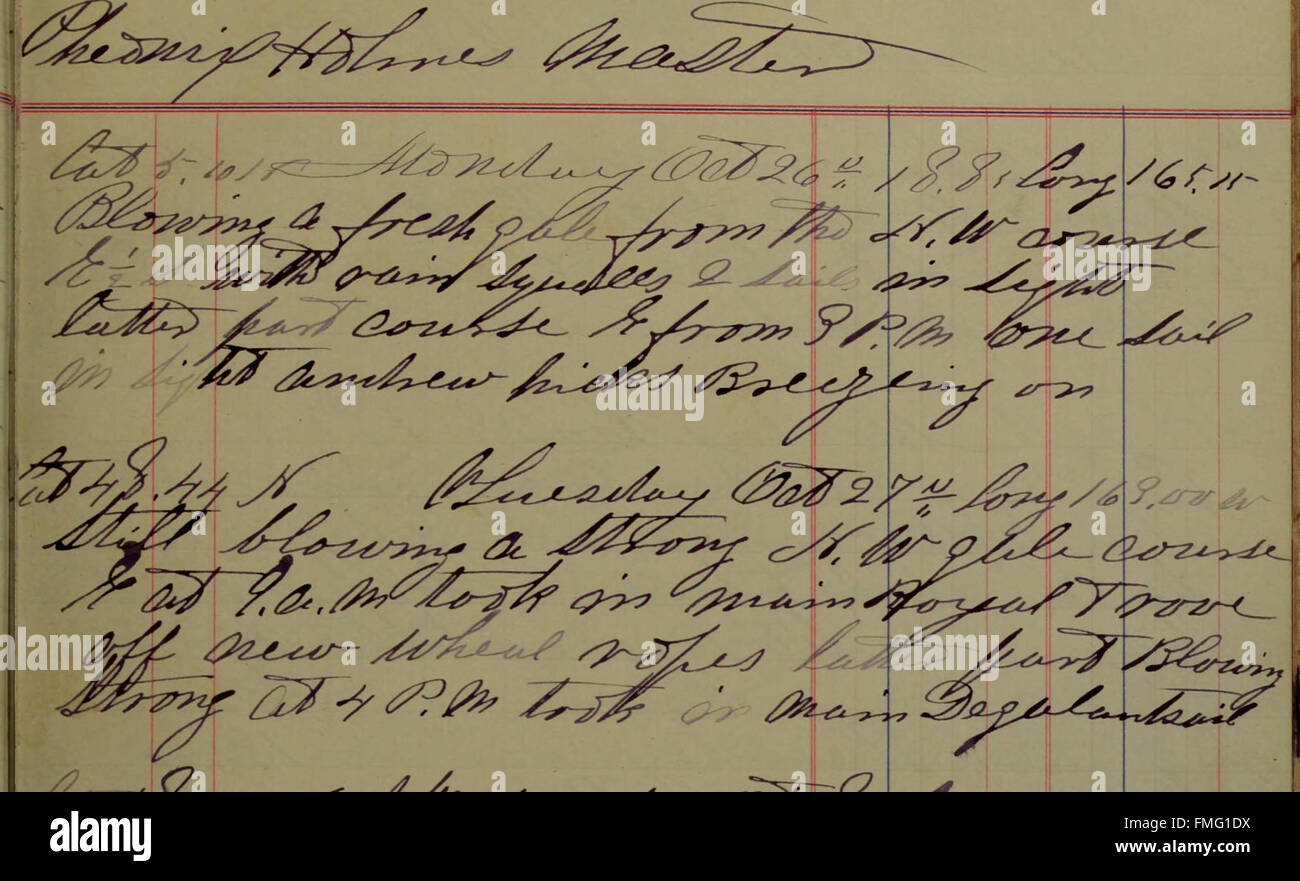 Pheonix Holmes Master
Lat Monday Oct 26th 1885 long 165.15
Blowing a fresh gale from the N. W course
E ½ S. with rain squalls 2 sails in sight
latter part course E from 3 P. M one sail
in sight andrew hicks Breezeing on
Lat 48.44 N Tuesday Oct 27th long 163.00 w
Still blowing a strong N. W gale course
E at 9. a. M took in main Royal
off new wheal ropes latter part Blowing
strong at 4 P. M took in main
alamy
Image ID: FMG1DX
www.alamy.com